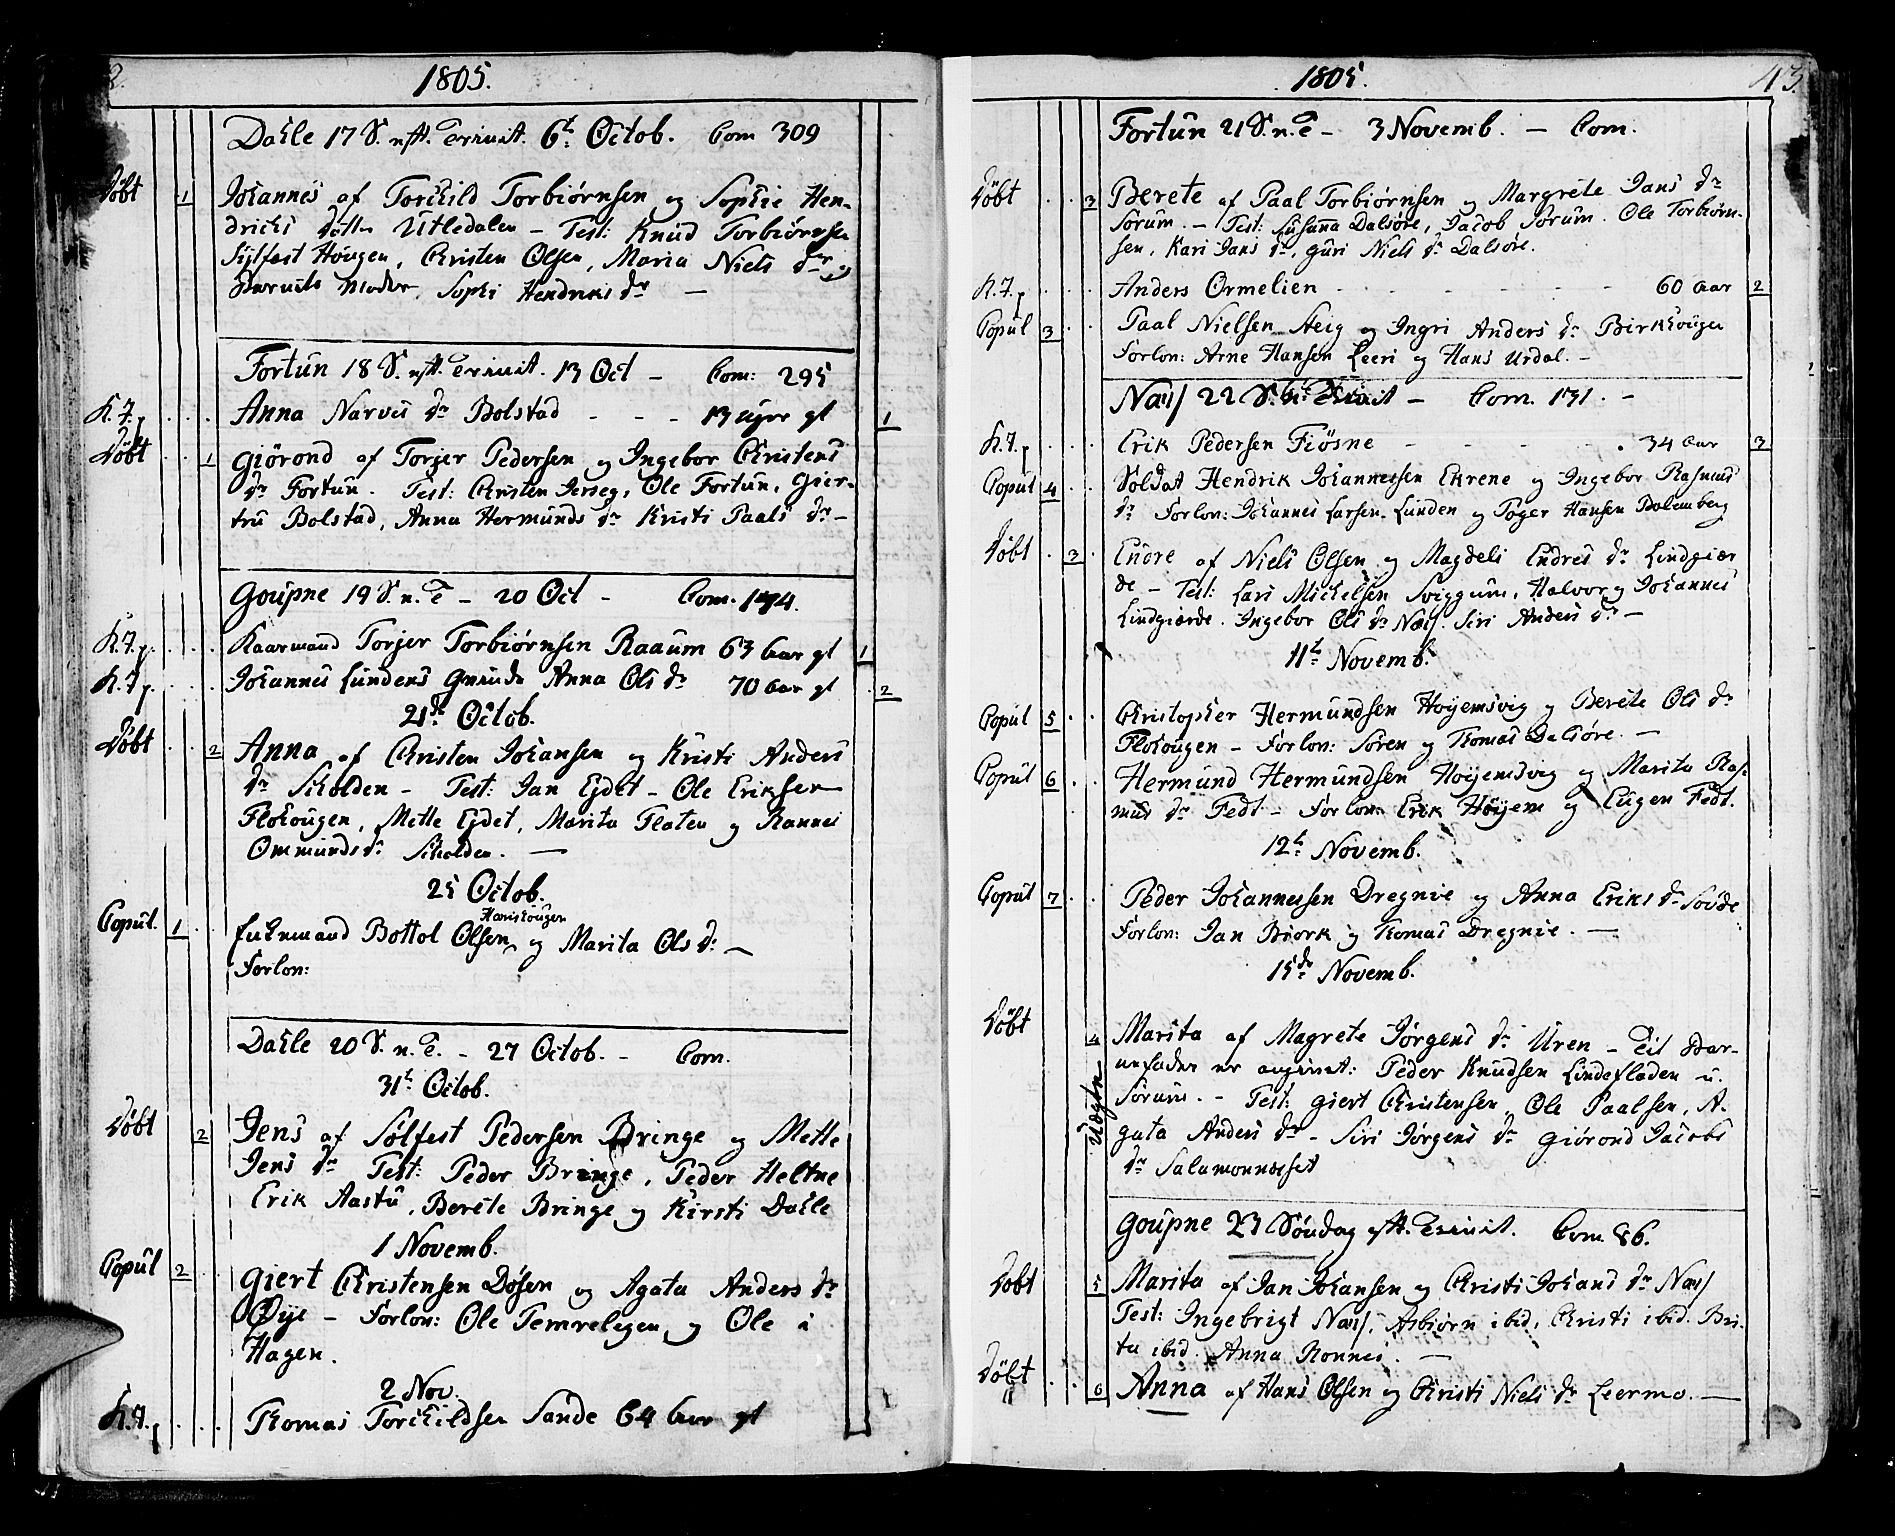 2.
1805.
Dahle 17 S. eftt. Trinit. 6t. Octob. Com 309
Døbt 1 Johannes af Torchild Torbiørnsen og Sophie Hen-
drichs Dotter Utledalen - Test: Knud Torbiørnsen
Sylfest Hougen, Christen Olsen, Maria Niels dr og
Barnets Moder Sophi Hendriks dr -
Fortun 18 S. eftt. Trinit. 13 Oct - Com: 295
K.J.p Anna Narves dr Bolstad - - - 13 uger gl 1
Døbt 1 Giørond af Torjer Pedersen og Ingebor Christens
dr Fortun. Test: Christen Berseg, Ole Fortun, Gier-
tru Bolstad, Anna Hermunds dr Kristi Paals dr -
Goupne 19 S. n. T - 20 Oct - Com. 174.
K.J.p. Kaarmand Torjer Torbiørnsen Raaum 63 Aar gl 1
K.J.p. Johannes Lundens Qvinde Anna Ols dr 70 Aar gl 2
21de Octob.
Døbt 2 Anna af Christen Johansen og Kristi Anders
dr Skolden - Test: Jan Ejdet - Ole Eriksen
Flohougen, Mette Ejdet, Marita Flaten og Rannei
Ommunds dr Skolden. -
25 Octob.
Copul. 1 Enkemand Bottol Olsen Hanshougen og Marita Ols dr -
Forlov:
Dahle 20 S. n. T. - 27 Octob. - Com.
31t. Octob.
Døbt 2 Jens af Sølfest Pedersen Bringe og Mette
Jens dr Test: Peder Bringe, Peder Heltne
Erik Aastu, Berete Bringe og Kirsti Dahle
1 Novemb.
Copul 2 Giert Christensen Døsen og Agata Anders dr
Øye - Forlov: Ole Temrelegen og Ole i
Hagen.
2 Nov.
K.J.p Thomas Torchildsen Sande 64 Aar gl
1805.
43.
Fortun 21 S. n. T - 3 Novemb. - Com.
Døbt 3 Berete af Paal Torbiørnsen og Margrete Jans dr
Sorum. - Test: Susanna Dalsøre, Jacob Sorum. Ole Torbiørn-
sen, Kari Jans dr, Guri Niels dr Dalsøre.
K.J.p Anders Ormelien - - - - - 60 Aar 2
Copul 3 Paal Nielsen Steig og Ingri Anders dr Birkhouger
Forlov: Arne Hansen Leeri og Hans Urdal. -
Næss 22 S. n. Trinit - Com. 131. -
K.J.p Erik Pedersen Fiøsne - - - - 34 Aar 3
Copul 4 Soldat Hendrik Johannessen Ekrene og Ingebor Rasmus
dr Forlov: Johannes Larsen Lunden og Roger Hansen Bolemberg
Døbt 3 Endre af Niels Olsen og Magdeli Endres dr Lindgiær
de - Test: Lars Mickelsen Sviggum, Halvor og Johannes
Lindgiærde. Ingebor Ols dr Næss. Siri Anders dr -
11t. Novemb.
Copul 5 Christopher Hermundsen Høyemsvig og Berete Ols dr
Flohougen - Forlov: Søren og Thomas Dalsøre. -
Copul 6 Hermund Hermundsen Høyemsvig og Marita Ras-
mus dr Fedt - Forlov: Erik Høyem og Eugen Fedt.
12t. Novemb.
Copul 7 Peder Johannessen Dregnie og Anna Eriks dr Søvde
Forlov: Jan Biørk og Thomas Dregnie. -
15de Novemb.
Døbt 4 Marita af Magrete Jørgens dr Uren - Til Bar-
Udøgte
nefader er angivet: Peder Knudsen Lindefladen u.
Sorum. - Test: Giert Christensen, Ole Paalsen, A-
gata Anders dr - Siri Jørgens dr Giørond Jacobs
dr Salamonnæset
Goupne 23 Søndag eftt. Trinit. Com. 86.
Døbt 5 Marita af Jan Johansen og Christi Johans dr Næss
Test: Ingebrigt Næss, Asbiørn ibid, Christi ibid. Bri-
ta ibid. Anna Ronnei. -
Døbt 6 Anna af Hans Olsen og Christi Niels dr Leermo. -